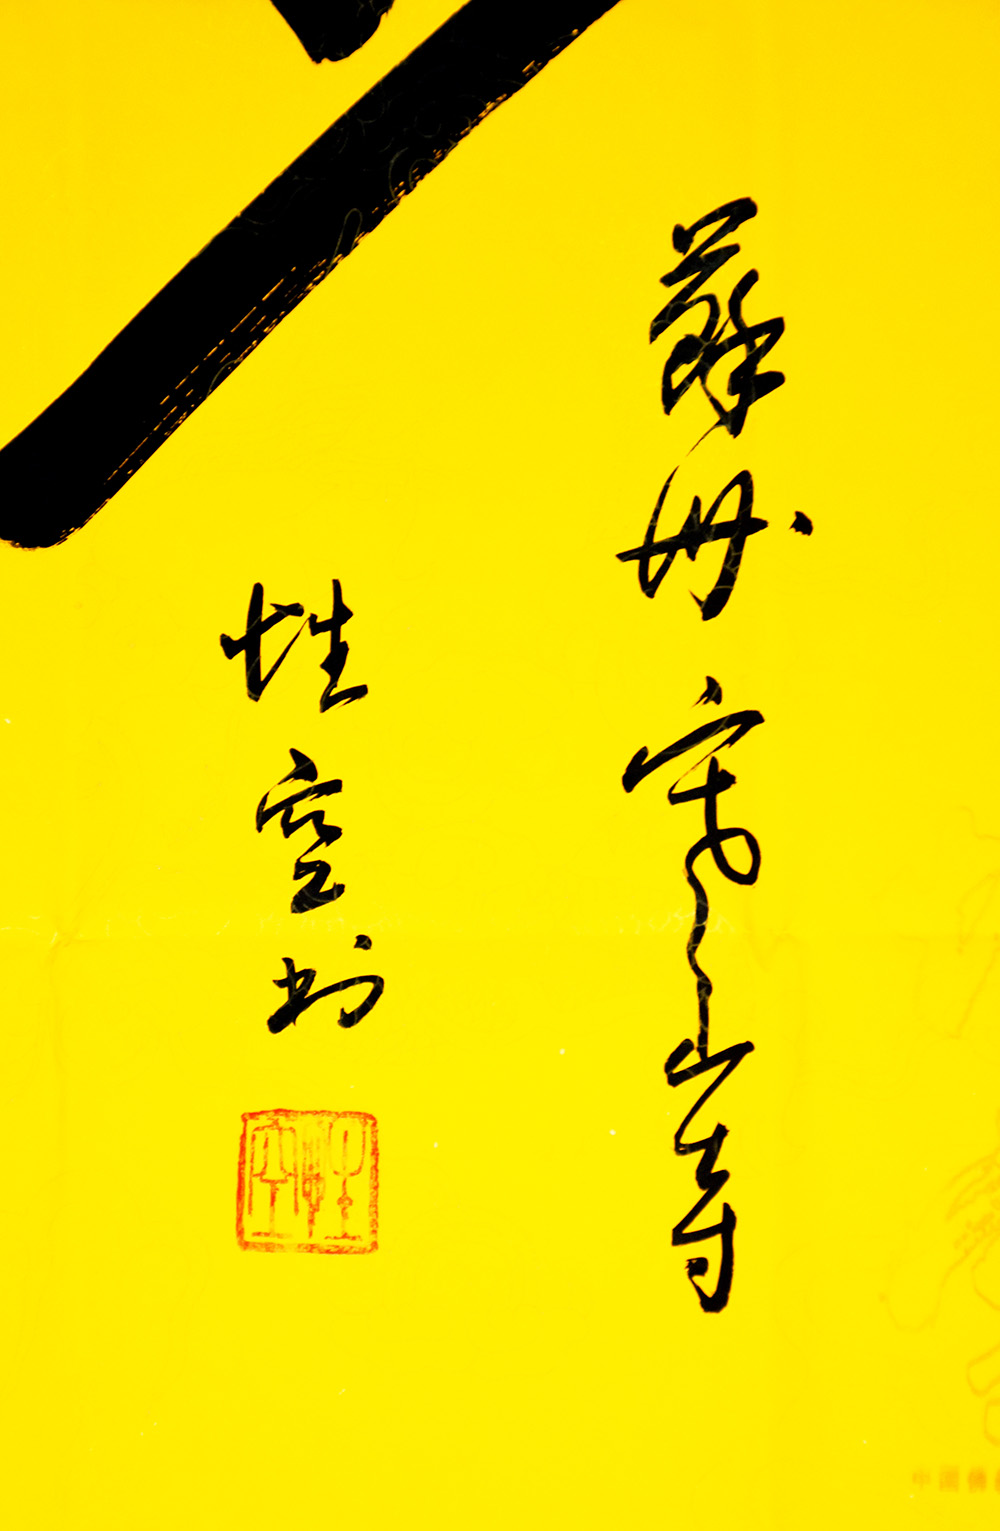 蘇州寒山寺
性空书
性空
中国佛